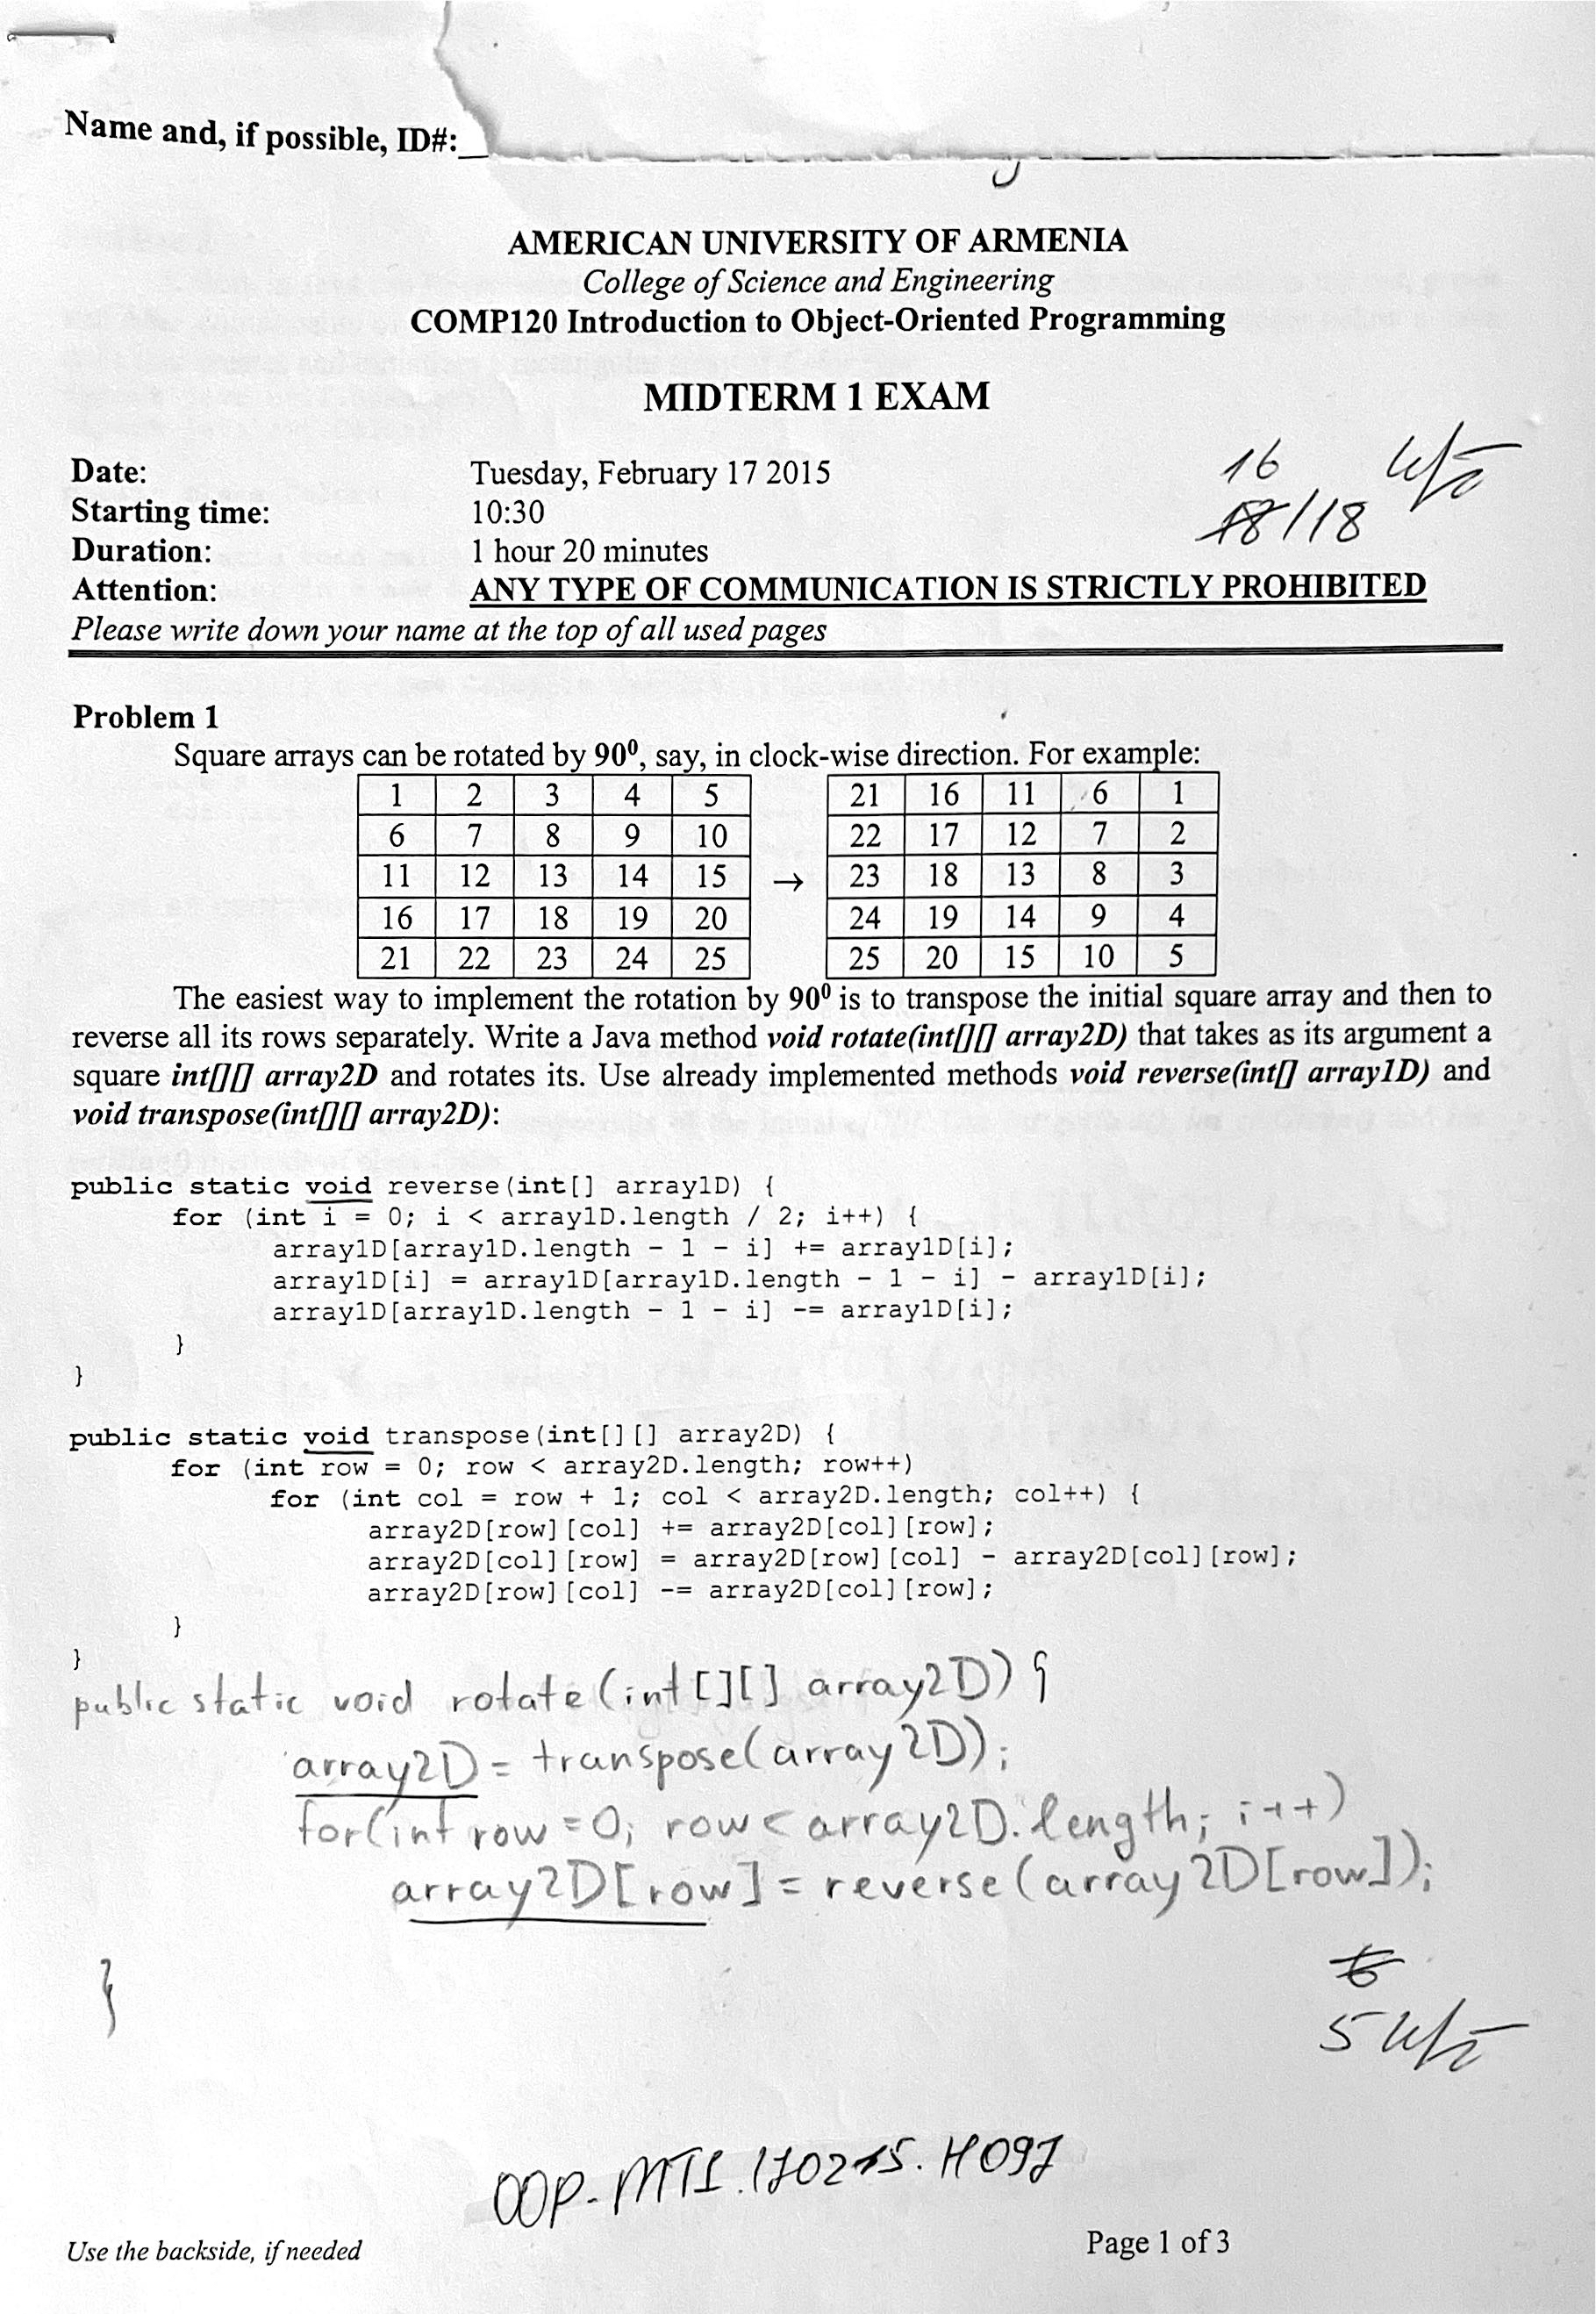 Name and, if possible, ID#:
AMERICAN UNIVERSITY OF ARMENIA
College of Science and Engineering
COMP120 Introduction to Object-Oriented Programming
MIDTERM 1 EXAM
Date: Tuesday, February 17 2015
Starting time: 10:30
Duration: 1 hour 20 minutes
16
18/18
Attention: ANY TYPE OF COMMUNICATION IS STRICTLY PROHIBITED
Please write down your name at the top of all used pages
Problem 1
Square arrays can be rotated by 90⁰, say, in clock-wise direction. For example:
1 2 3 4 5 21 16 11 6 1
6 7 8 9 10 22 17 12 7 2
11 12 13 14 15 → 23 18 13 8 3
16 17 18 19 20 24 19 14 9 4
21 22 23 24 25 25 20 15 10 5
The easiest way to implement the rotation by 90⁰ is to transpose the initial square array and then to
reverse all its rows separately. Write a Java method void rotate(int[][] array2D) that takes as its argument a
square int[][] array2D and rotates its. Use already implemented methods void reverse(int[] array1D) and
void transpose(int[][] array2D):
public static void reverse(int[] array1D) {
for (int i = 0; i < array1D.length / 2; i++) {
array1D[array1D.length - 1 - i] += array1D[i];
array1D[i] = array1D[array1D.length - 1 - i] - array1D[i];
array1D[array1D.length - 1 - i] -= array1D[i];
}
}
public static void transpose(int[][] array2D) {
for (int row = 0; row < array2D.length; row++)
for (int col = row + 1; col < array2D.length; col++) {
array2D[row][col] += array2D[col][row];
array2D[col][row] = array2D[row][col] - array2D[col][row];
array2D[row][col] -= array2D[col][row];
}
}
public static void rotate(int[][] array2D) {
array2D = transpose(array2D);
for(int row = 0; row < array2D.length; i++)
array2D[row] = reverse(array2D[row]);
}
6
5
OOP-MT1.170215.H097
Use the backside, if needed
Page 1 of 3